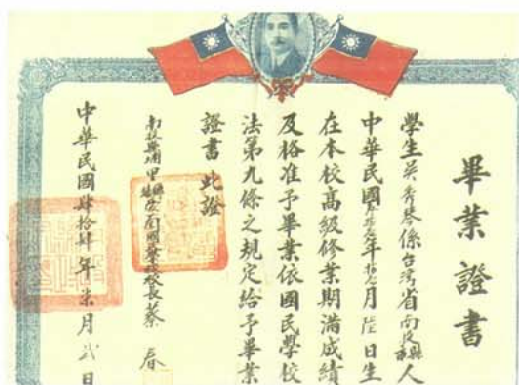 畢業證書
學生吳秀琴係台灣省南投縣人
中華民國年月陸日生
在本校高級修業期滿成績
及格准予畢業依國民學校
法第九條之規定給予畢業
證書此證
南投縣埔里鎮南國校長蔡春
中華民國肆拾肆年柒月弍日